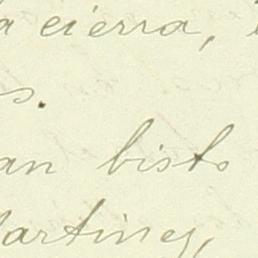 acierra,
s.
an bisto
artinez,